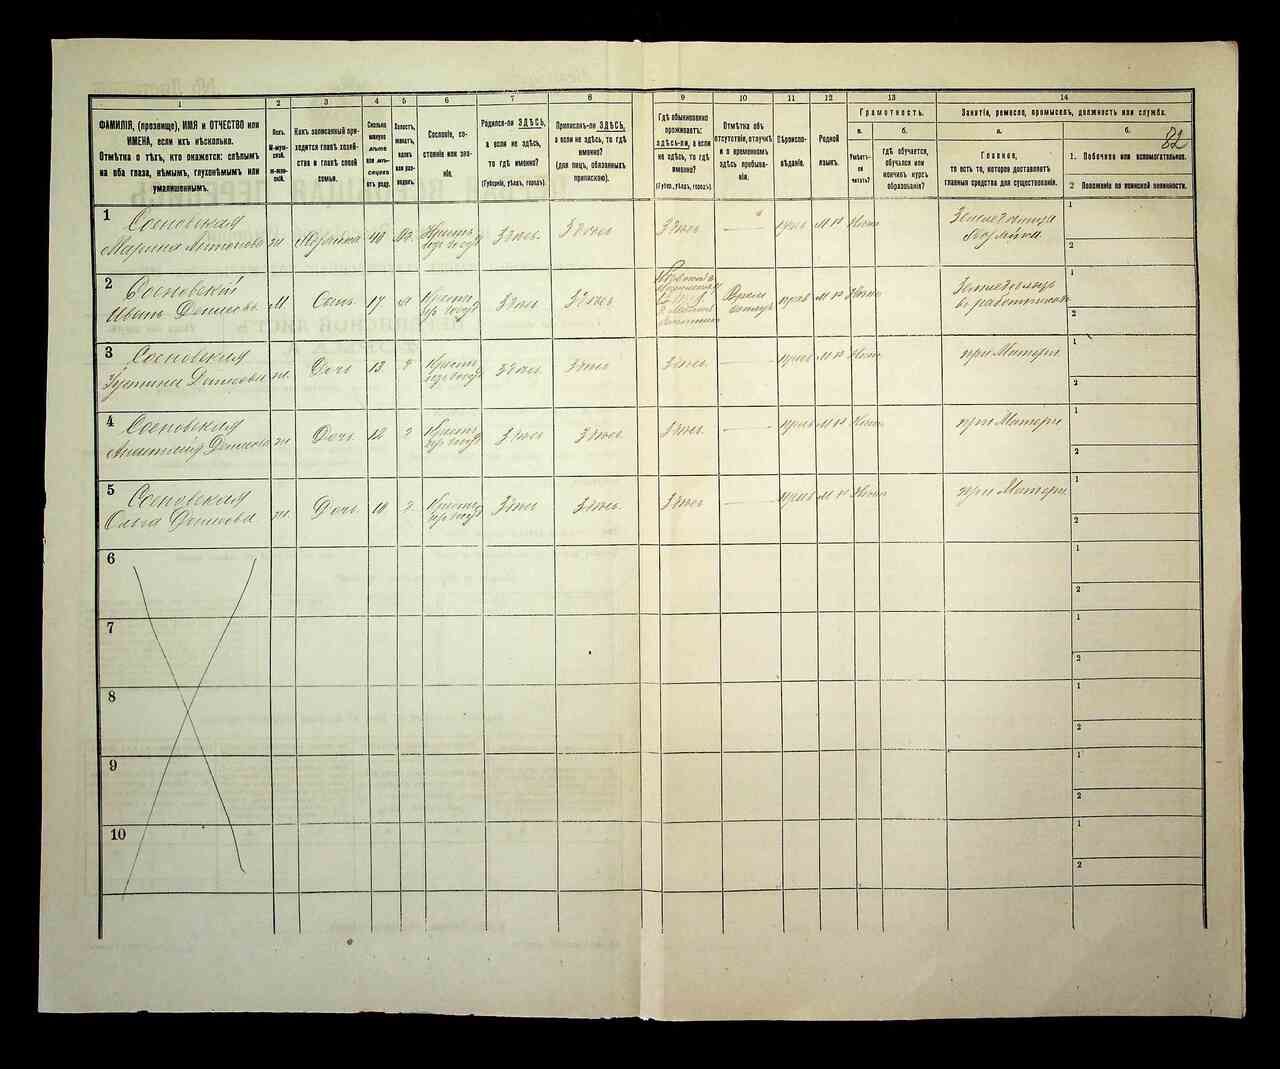 82
1 2 3 4 5 6 7 8 9 10 11 12 13 14
ФАМИЛІЯ, (прозвище), ИМЯ и ОТЧЕСТВО или
ИМЕНА, если ихъ нѣсколько.
Отмѣтка о тѣхъ, кто окажется: слѣпымъ
на оба глаза, нѣмымъ, глухонѣмымъ или
умалишеннымъ.
Полъ.
М-муж-
ской.
Ж-жен-
скій.
Какъ записанный при-
ходится главѣ хозяй-
ства и главѣ своей
семьи.
Сколько
минуло
лѣтъ
или мѣ-
сяцевъ
отъ роду.
Холостъ,
женатъ,
вдовъ
или раз-
веденъ.
Сословіе, со-
стояніе или зва-
ніе.
Родился-ли ЗДѢСЬ,
а если не здѣсь,
то гдѣ именно?
(Губернія, уѣздъ, городъ).
Приписанъ-ли ЗДѢСЬ,
а если не здѣсь, то гдѣ
именно?
(для лицъ, обязанныхъ
припискою).
Гдѣ обыкновенно
проживаетъ:
здѣсь-ли, а если
не здѣсь, то гдѣ
именно?
(Губерн., уѣздъ, городъ).
Отмѣтка объ
отсутствіи, отлучкѣ
и о временномъ
здѣсь пребыва-
ніи.
Вѣроиспо-
вѣданіе.
Родной
языкъ.
Грамотность.
а.
Умѣетъ-
ли
читать?
б.
гдѣ обучается,
обучался или
кончилъ курсъ
образованія?
Занятіе, ремесло, промыселъ, должность или служба.
а.
Главное,
то есть то, которое доставляетъ
главныя средства для существованія.
б.
1. Побочное или вспомогательное.
2 Положеніе по воинской повинности.
1
Сосновская
Марина Антонова ж Хозяйка 40 Здѣсь Здѣсь Здѣсь прав м р Земледѣлица
Хозяйка
1
2
2
Сосновскій
Иванъ Денисовъ М Сынъ 17 Здѣсь Здѣсь прав м р Земледѣлецъ
въ работникахъ
1
2
3
Сосновская
Денисова ж Дочь 13 Здѣсь Здѣсь Здѣсь прав м р при Матери
1
2
4
Сосновская
Анастасія Денисова ж Дочь 12 Здѣсь Здѣсь Здѣсь прав м р при Матери
1
2
5
Сосновская
Ольга Денисова ж Дочь 10 Здѣсь Здѣсь Здѣсь прав м р при Матери
1
2
6
1
2
7
1
2
8
1
2
9
1
2
10
1
2